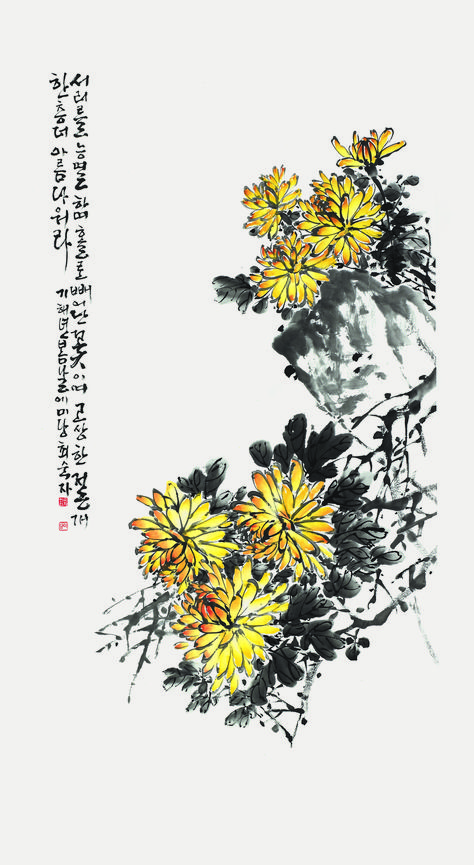 서리를 능멸하며 홀로 빼어난 꽃이여 고상한 절개
한층더 아름다워라
기해년 봄날에 미당 최숙자